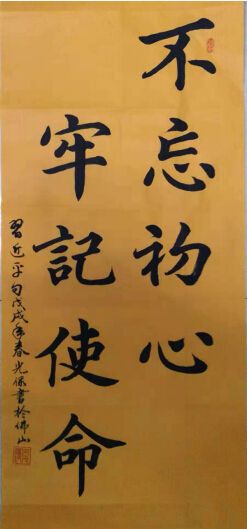 不忘初心
牢記使命
習近平句戊戌年春光保書於佛山